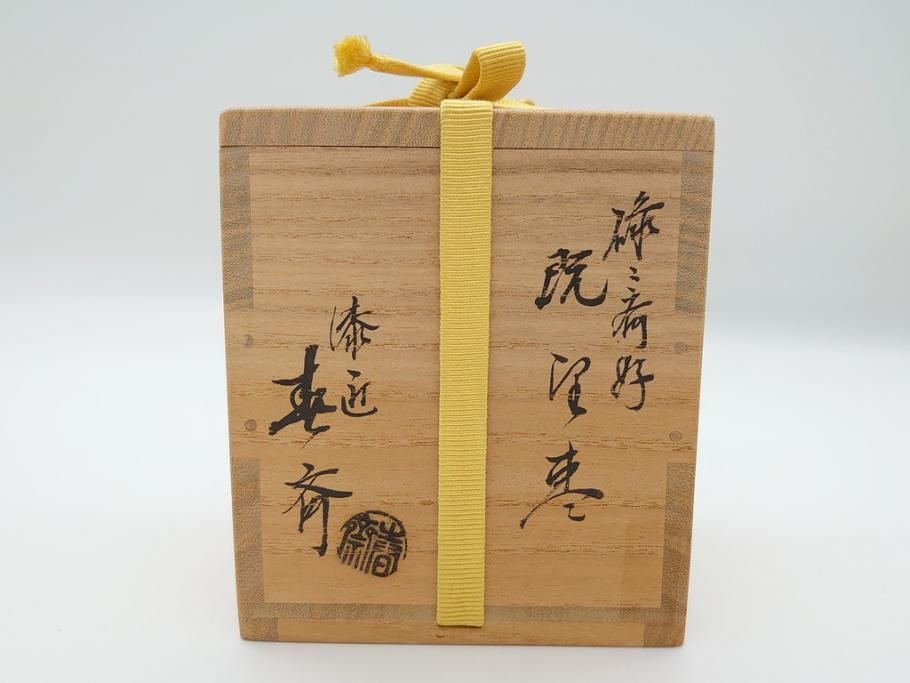 碌々斎好
既望棗
漆匠
春斎
春斎